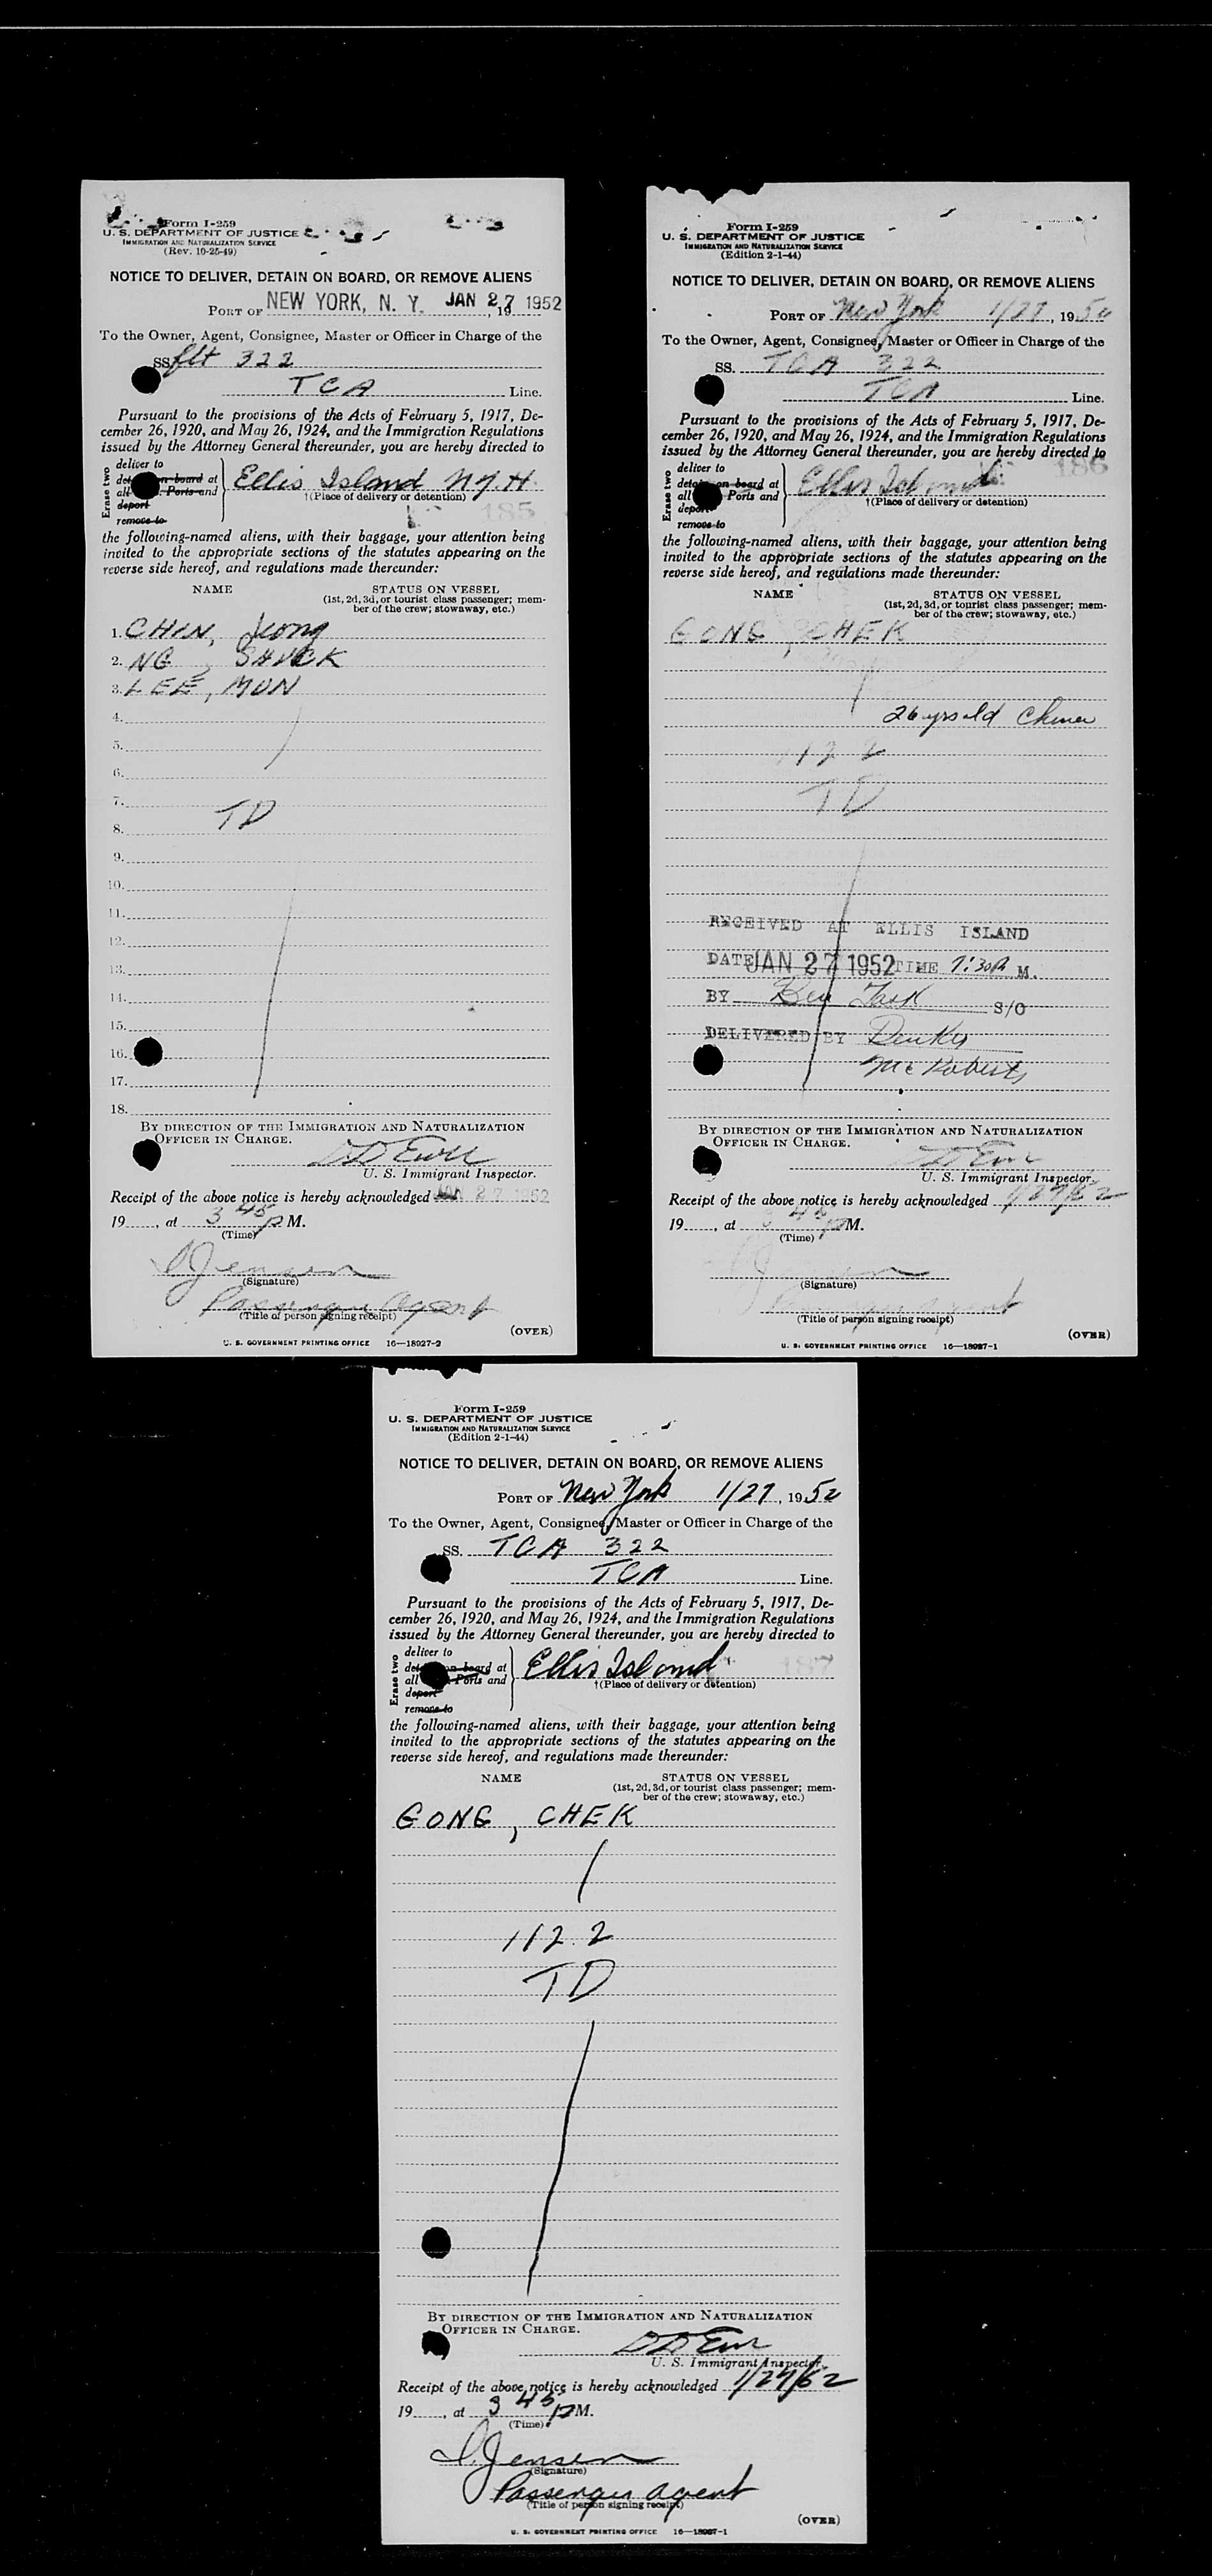 Form I-259
U. S. DEPARTMENT OF JUSTICE
IMMIGRATION AND NATURALIZATION SERVICE
(Rev. 10-25-49)
NOTICE TO DELIVER, DETAIN ON BOARD, OR REMOVE ALIENS
PORT OF NEW YORK, N. Y. JAN 27 1952, 19
To the Owner, Agent, Consignee, Master or Officer in Charge of the
SS flt 322
TCA Line.
Pursuant to the provisions of the Acts of February 5, 1917, De-
cember 26, 1920, and May 26, 1924, and the Immigration Regulations
issued by the Attorney General thereunder, you are hereby directed to
Erase two
deliver to
on board at
all Ports and
deport
remove to
Ellis Island N.Y.H.
†(Place of delivery or detention)
185
the following-named aliens, with their baggage, your attention being
invited to the appropriate sections of the statutes appearing on the
reverse side hereof, and regulations made thereunder:
NAME STATUS ON VESSEL
(1st, 2d, 3d, or tourist class passenger; mem-
ber of the crew; stowaway, etc.)
1. CHIN, Jeong
2. NG, SHUCK
3. LEE, MUN
4.
5.
6.
7.
TD
8.
9.
10.
11.
12.
13.
14.
15.
16.
17.
18.
BY DIRECTION OF THE IMMIGRATION AND NATURALIZATION
OFFICER IN CHARGE.
U. S. Immigrant Inspector.
Receipt of the above notice is hereby acknowledged JAN 27 1952
19, at 3 45 P M.
(Time)
Jensen
(Signature)
Passenger Agent
(Title of person signing receipt)
(OVER)
U. S. GOVERNMENT PRINTING OFFICE 16—18927-2
Form I-259
U. S. DEPARTMENT OF JUSTICE
IMMIGRATION AND NATURALIZATION SERVICE
(Edition 2-1-44)
NOTICE TO DELIVER, DETAIN ON BOARD, OR REMOVE ALIENS
PORT OF New York 1/27, 1952
To the Owner, Agent, Consignee, Master or Officer in Charge of the
SS. TCA 322
TCA Line.
Pursuant to the provisions of the Acts of February 5, 1917, De-
cember 26, 1920, and May 26, 1924, and the Immigration Regulations
issued by the Attorney General thereunder, you are hereby directed to
186
Erase two
deliver to
detain on board at
all Ports and
deport
remove to
Ellis Island
†(Place of delivery or detention)
the following-named aliens, with their baggage, your attention being
invited to the appropriate sections of the statutes appearing on the
reverse side hereof, and regulations made thereunder:
NAME STATUS ON VESSEL
(1st, 2d, 3d, or tourist class passenger; mem-
ber of the crew; stowaway, etc.)
GONG, CHEK
26 yrs old China
112.2
TD
RECEIVED AT ELLIS ISLAND
DATE JAN 27 1952 TIME 7:30P M.
BY Ben Task S/O
DELIVERED BY
McRoberts
BY DIRECTION OF THE IMMIGRATION AND NATURALIZATION
OFFICER IN CHARGE.
U. S. Immigrant Inspector.
Receipt of the above notice is hereby acknowledged 1/27/52
19, at 3 45 P M.
(Time)
Jensen
(Signature)
Passenger Agent
(Title of person signing receipt)
(OVER)
U. S. GOVERNMENT PRINTING OFFICE 16—18927-1
Form I-259
U. S. DEPARTMENT OF JUSTICE
IMMIGRATION AND NATURALIZATION SERVICE
(Edition 2-1-44)
NOTICE TO DELIVER, DETAIN ON BOARD, OR REMOVE ALIENS
PORT OF New York 1/27, 1952
To the Owner, Agent, Consignee, Master or Officer in Charge of the
SS. TCA 322
TCA Line.
Pursuant to the provisions of the Acts of February 5, 1917, De-
cember 26, 1920, and May 26, 1924, and the Immigration Regulations
issued by the Attorney General thereunder, you are hereby directed to
Erase two
deliver to
on board at
all Ports and
deport
remove to
Ellis Island 187
†(Place of delivery or detention)
the following-named aliens, with their baggage, your attention being
invited to the appropriate sections of the statutes appearing on the
reverse side hereof, and regulations made thereunder:
NAME STATUS ON VESSEL
(1st, 2d, 3d, or tourist class passenger; mem-
ber of the crew; stowaway, etc.)
GONG, CHEK
112.2
TD
BY DIRECTION OF THE IMMIGRATION AND NATURALIZATION
OFFICER IN CHARGE.
U. S. Immigrant Inspector.
Receipt of the above notice is hereby acknowledged 1/27/52
19, at 3 45 P M.
(Time)
Jensen
(Signature)
Passenger Agent
(Title of person signing receipt)
(OVER)
U. S. GOVERNMENT PRINTING OFFICE 16—18927-1